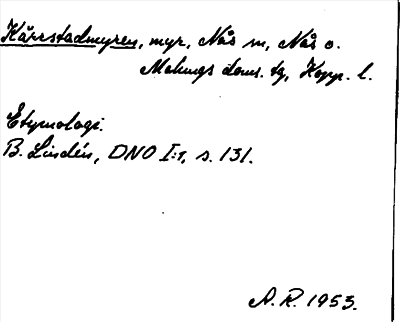 Kärrstadmyren, myr, Nås sn, Nås o.
Malungs doms. tg, Kopp. l.
Etymologi.
B. Lindén, DNO I:1, s. 131.
A. R. 1953.